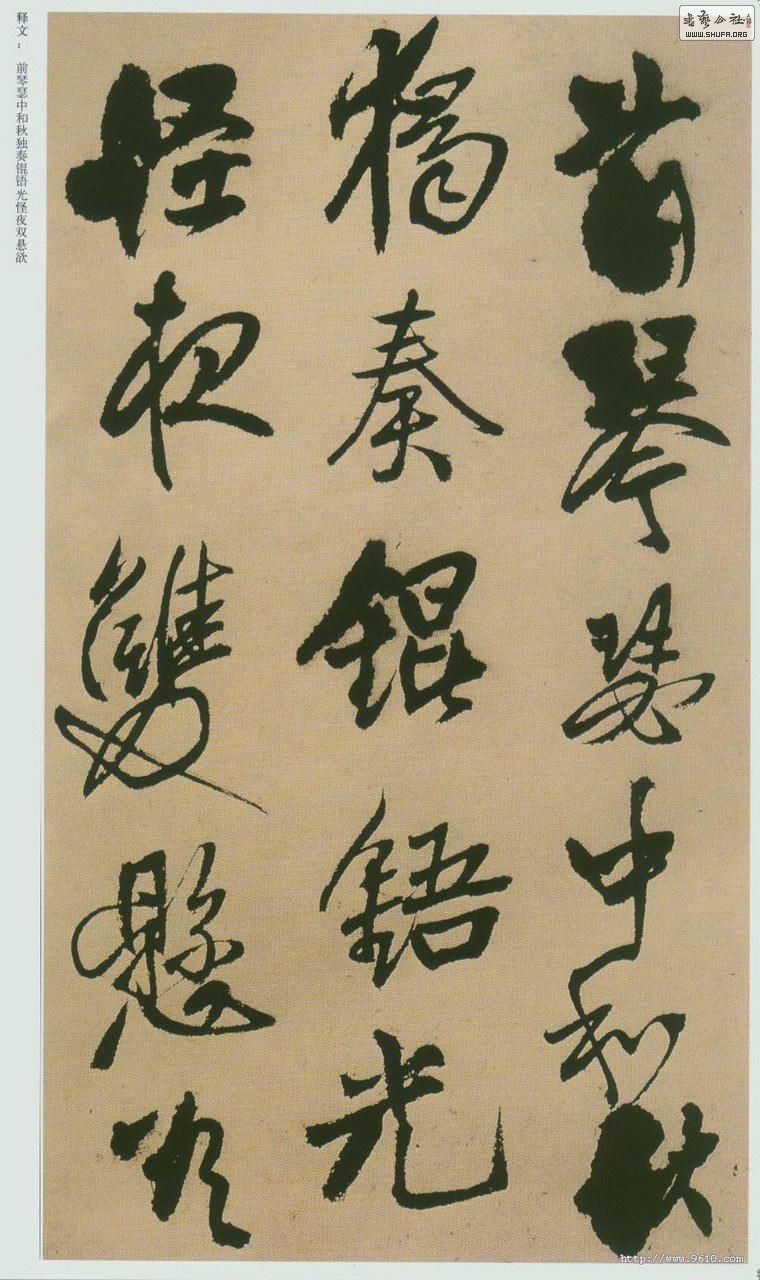 前琴瑟中和秋
獨奏錕鋙光
怪夜雙懸欲
释文：　前琴瑟中和秋独奏锟铻光怪夜双悬欲
书艺公社
WWW.SHUFA.ORG
http://www.9610.com